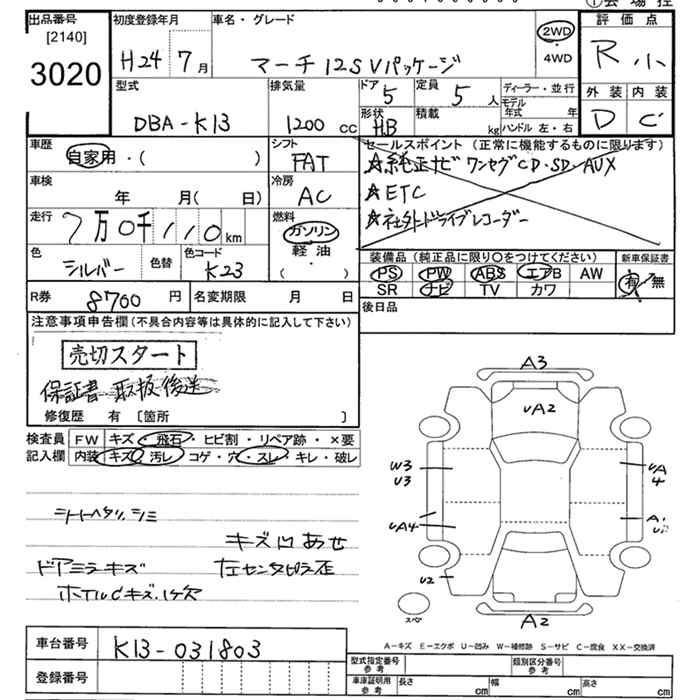 出品番号
[2140]
3020
初度登録年月
H24 7月
車名・グレード
マーチ 12S Vパッケージ
2WD
4WD
評価点
R 小
外装 内装
D C
型式
DBA-K13
排気量
1200 cc
ドア
5
形状
HB
定員
5 人
積載
kg
ディーラー・並行
モデル
年式 年
ハンドル 左・右
車歴
自家用・( )
シフト
FAT
セールスポイント (正常に機能するものに限ります)
☆純正ナビ ワンセグCD・SD・AUX
☆ETC
☆社外ドライブレコーダー
車検
年 月( 日)
冷房
AC
走行
7万0千110 km
燃料
ガソリン
軽油
( )
色
シルバー
色替
色コード
K23
装備品 (純正品に限り〇をつけてください)
PS PW ABS エアB AW
SR ナビ TV カワ
新車保証書
有 無
R券
8700 円
名変期限 月 日
後日品
注意事項申告欄 (不具合内容等は具体的に記入して下さい)
売切スタート
保証書 取扱 後送
修復歴 有 〔箇所 〕
検査員 FW キズ・飛石・ヒビ割・リペア跡・×要
記入欄 内装 キズ・汚レ・コゲ・穴・スレ・キレ・破レ
シートヘタリ、シミ
キズ凹あせ
ドアミラーキズ
左センタピラ歪
ホイルCキズ.1ケ欠
A3
UA2
W3
U3
UA
4
UA4
U2
スペア
A2
A-キズ E-エクボ U-凹み W-補修跡 S-サビ C-腐食 XX-交換済
車台番号
K13-031803
登録番号
型式指定番号
参考
類別区分番号
参考
車庫証明用
参考
長さ cm
幅 cm
高さ cm